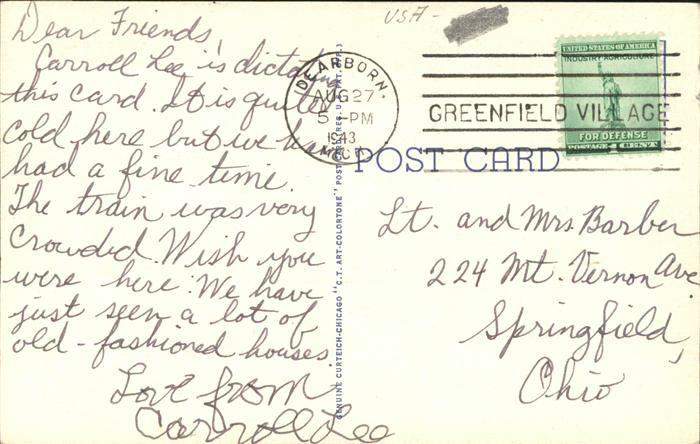 USA-
Dear Friends,
Carroll Lee is dictating
this card. It is quite
cold here but we have
had a fine time.
The train was very
crowded. Wish you
were here. We have
just seen a lot of
old-fashioned houses.
Love from
Carroll Lee
DEARBORN.
AUG 27
5 - PM
1943
MICH
GREENFIELD VILLAGE
UNITED STATES OF AMERICA
INDUSTRY-AGRICULTURE
FOR DEFENSE
POSTAGE 1 CENT
GENUINE CURTEICH-CHICAGO "C.T. ART-COLORTONE" POST CARD (REG. U.S. PAT. OFF.)
POST CARD
Lt. and Mrs. Barber
224 Mt. Vernon Ave.
Springfield,
Ohio